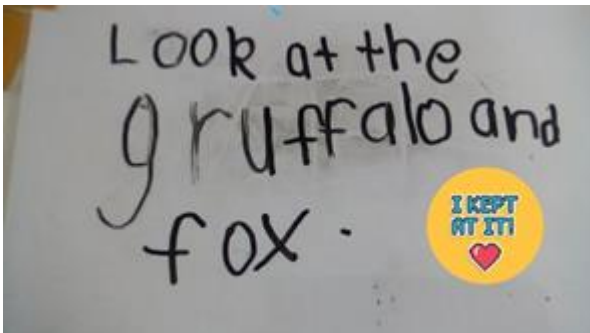 Look at the
gruffalo and
fox.
I KEPT
AT IT!